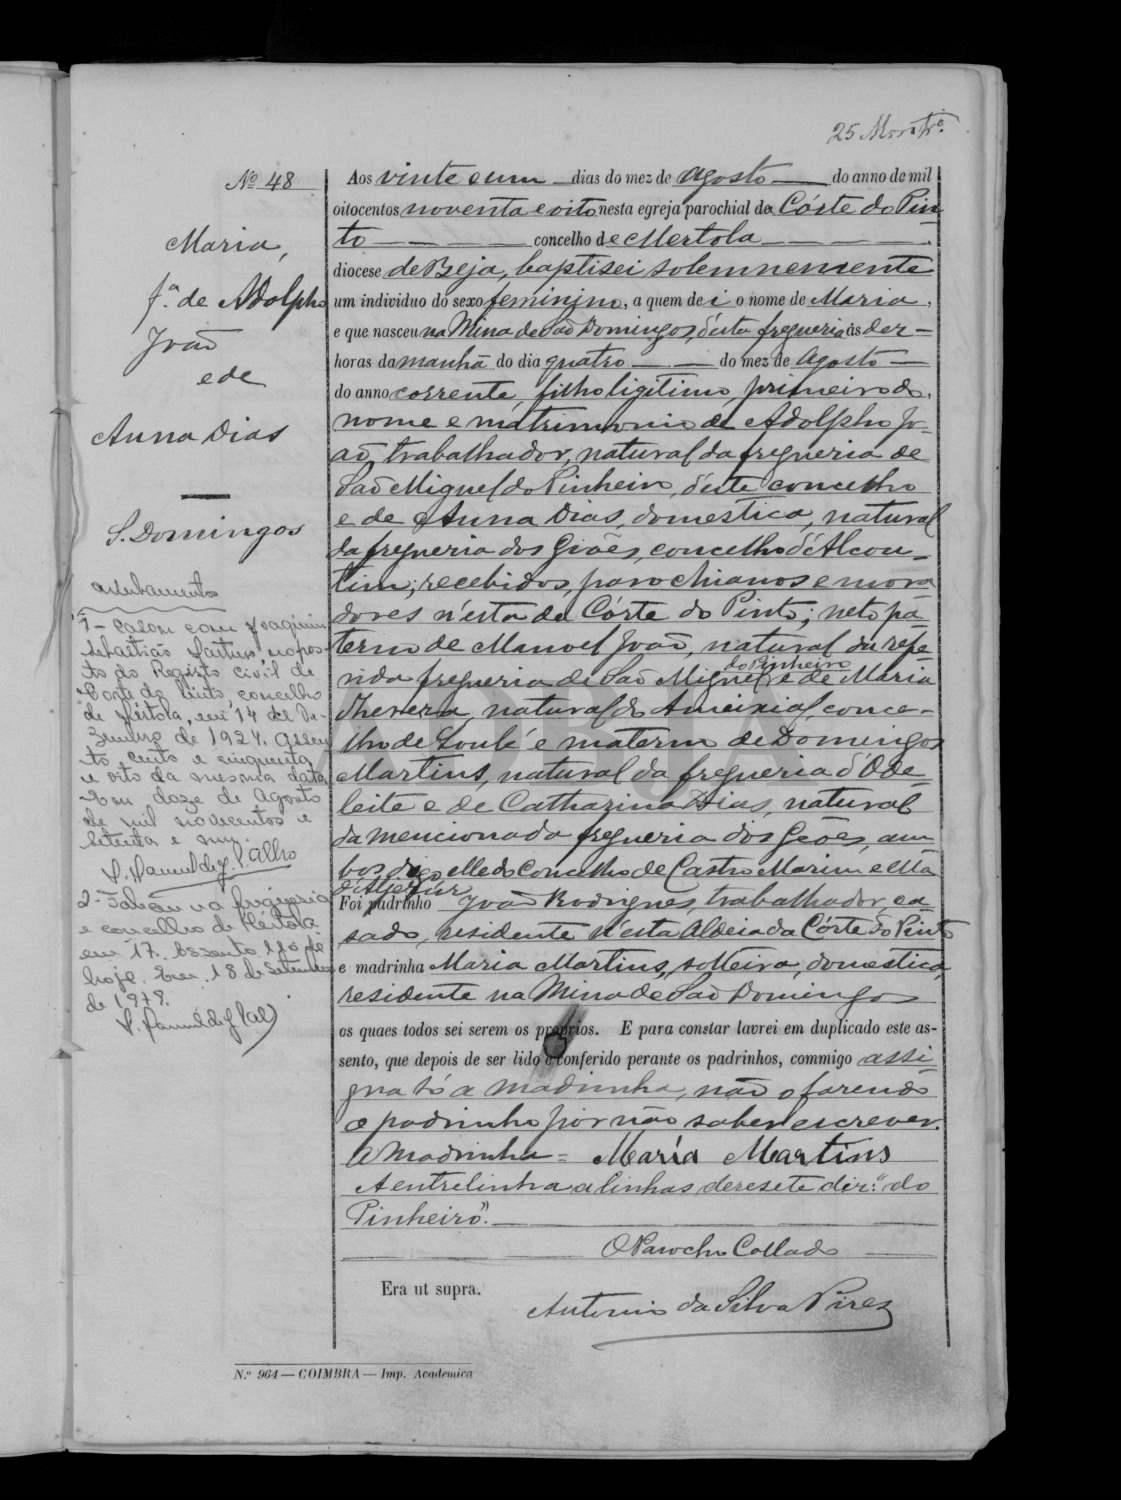 25
Nº 48
Maria,
f.ª de Adolpho
João
e de
Anna Dias
S. Domingos
Averbamento
1- Casou com Joaquim
Sebastião Martins, no pos-
to do Registo civil de
Corte do Pinto, concelho
de Mértola, em 14 de De-
zembro de 1924. Assen-
to cento e cinquenta
e oito da mesma data
Em doze de Agosto
de mil novecentos e
setenta e um.
2- Faleceu na freguesia
e concelho de Mértola
em 17. Assento 110 de
hoje. Em 18 de Setembro
de 1979.
Aos vinte e um dias do mez de Agosto do anno de mil
oitocentos noventa e oito nesta egreja parochial da Córte do Pin-
to concelho de Mertola
diocese de Beja, baptisei solemnemente
um individuo do sexo feminino, a quem dei o nome de Maria,
e que nasceu na Mina de São Domingos, d'esta freguezia ás dez
horas da manhã do dia quatro do mez de Agosto
do anno corrente, filho ligitimo, primeiro do
nome e matrimonio de Adolpho Jo-
ão, trabalhador, natural da freguezia de
São Miguel do Pinheiro, d'este concelho
e de Anna Dias, domestica, natural
da freguezia dos Giões, concelho d'Alcou-
tim; recebidos, parochianos e mora-
dores n'esta da Córte do Pinto; neto pa-
terno de Manoel João, natural da refe-
do Pinheiro
rida freguezia de São Miguel e de Maria
Thereza, natural do Ameixial, conce-
lho de Loulé e materno de Domingos
Martins, natural da freguezia d'Ode-
leite e de Catharina Dias, natural
da mencionada freguezia dos Giões, am-
bos, digo elle do concelho de Castro Marim e ella
Foi padrinho João Rodrigues, trabalhador, ca-
sado, residente n'esta Aldeia da Córte do Pinto
e madrinha Maria Martins, solteira, domestica,
residente na Mina de São Domingos
os quaes todos sei serem os proprios. E para constar lavrei em duplicado este as-
sento, que depois de ser lido e conferido perante os padrinhos, commigo assi-
gna só a madrinha, não o fazendo
o padrinho por não saber escrever.
A Madrinha = María Martins
A entrelinha a linhas dezesete diz: "do
Pinheiro".
O Parocho Collado
Era ut supra.
Antonio da Silva Pires
N.º 964 — COIMBRA — Imp. Academica